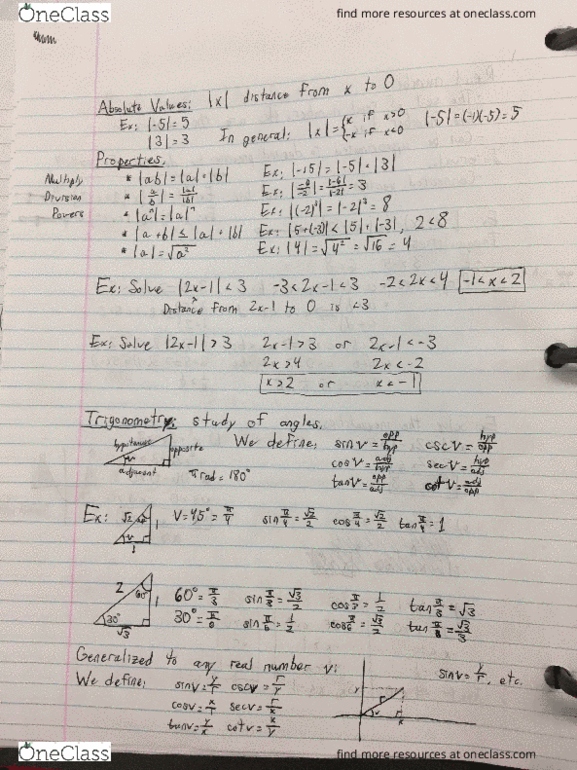 OneClass
find more resources at oneclass.com
Absolute Values: |x| distance from x to 0
Ex: |-5| = 5
|3| = 3
In general: |x| = {x if x>0
{-x if x<0
|-5| = (-1)(-5) = 5
Properties:
Multiply * |ab| = |a|·|b| Ex: |-15| = |-5|·|3|
Division * |a/b| = |a|/|b| Ex: |-6/-2| = |-6|/|-2| = 3
Powers * |aⁿ| = |a|ⁿ Ex: |(-2)³| = |-2|³ = 8
* |a+b| ≤ |a|+|b| Ex: |5+(-3)| < |5|+|-3|, 2<8
* |a| = √a² Ex: |4| = √4² = √16 = 4
Ex: Solve |2x-1|<3 -3<2x-1<3 -2<2x<4 -1<x<2
Distance from 2x-1 to 0 is <3
Ex: Solve |2x-1|>3 2x-1>3 or 2x-1<-3
2x>4 2x<-2
x>2 or x<-1
Trigonometry: study of angles.
hypotenuse opposite
adjacent
v
π rad = 180°
We define: sin v = opp/hyp csc v = hyp/opp
cos v = adj/hyp sec v = hyp/adj
tan v = opp/adj cot v = adj/opp
Ex: √2 1 v 1 V = 45° = π/4 sin π/4 = √2/2 cos π/4 = √2/2 tan π/4 = 1
2 60° 1 30° √3
60° = π/3 sin π/3 = √3/2 cos π/3 = 1/2 tan π/3 = √3
30° = π/6 sin π/6 = 1/2 cos π/6 = √3/2 tan π/6 = √3/3
Generalized to any real number v:
We define: sin v = y/r csc v = r/y
cos v = x/r sec v = r/x
tan v = y/x cot v = x/y
y r v x
sin v = y/r, etc.
OneClass
find more resources at oneclass.com